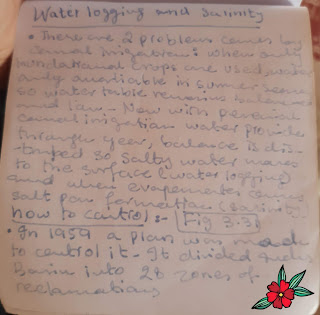 Water logging and Salinity
• There are 2 problems comes by
canal irrigation: when only
inundational crops are used water
only available in summer season
so water table remains balanced
and low. Now with perenial
canal irrigation water provides
through year, balance is dis-
turbed so, Salty water moves
to the surface (water logging)
and when evaporates causes
salt pan formation (salinity)
how to control :- Fig 3.3
• In 1959 a plan was made
to control it. It divided Indus
Basin into 28 zones of
reclamations